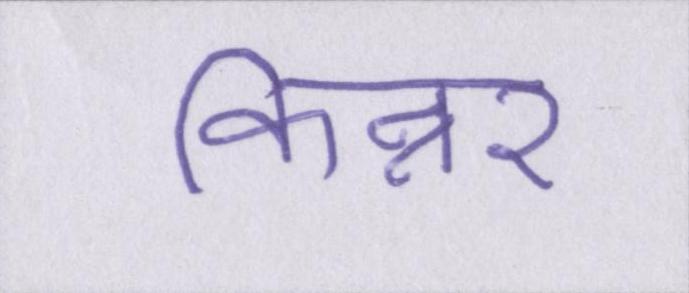 किन्नर